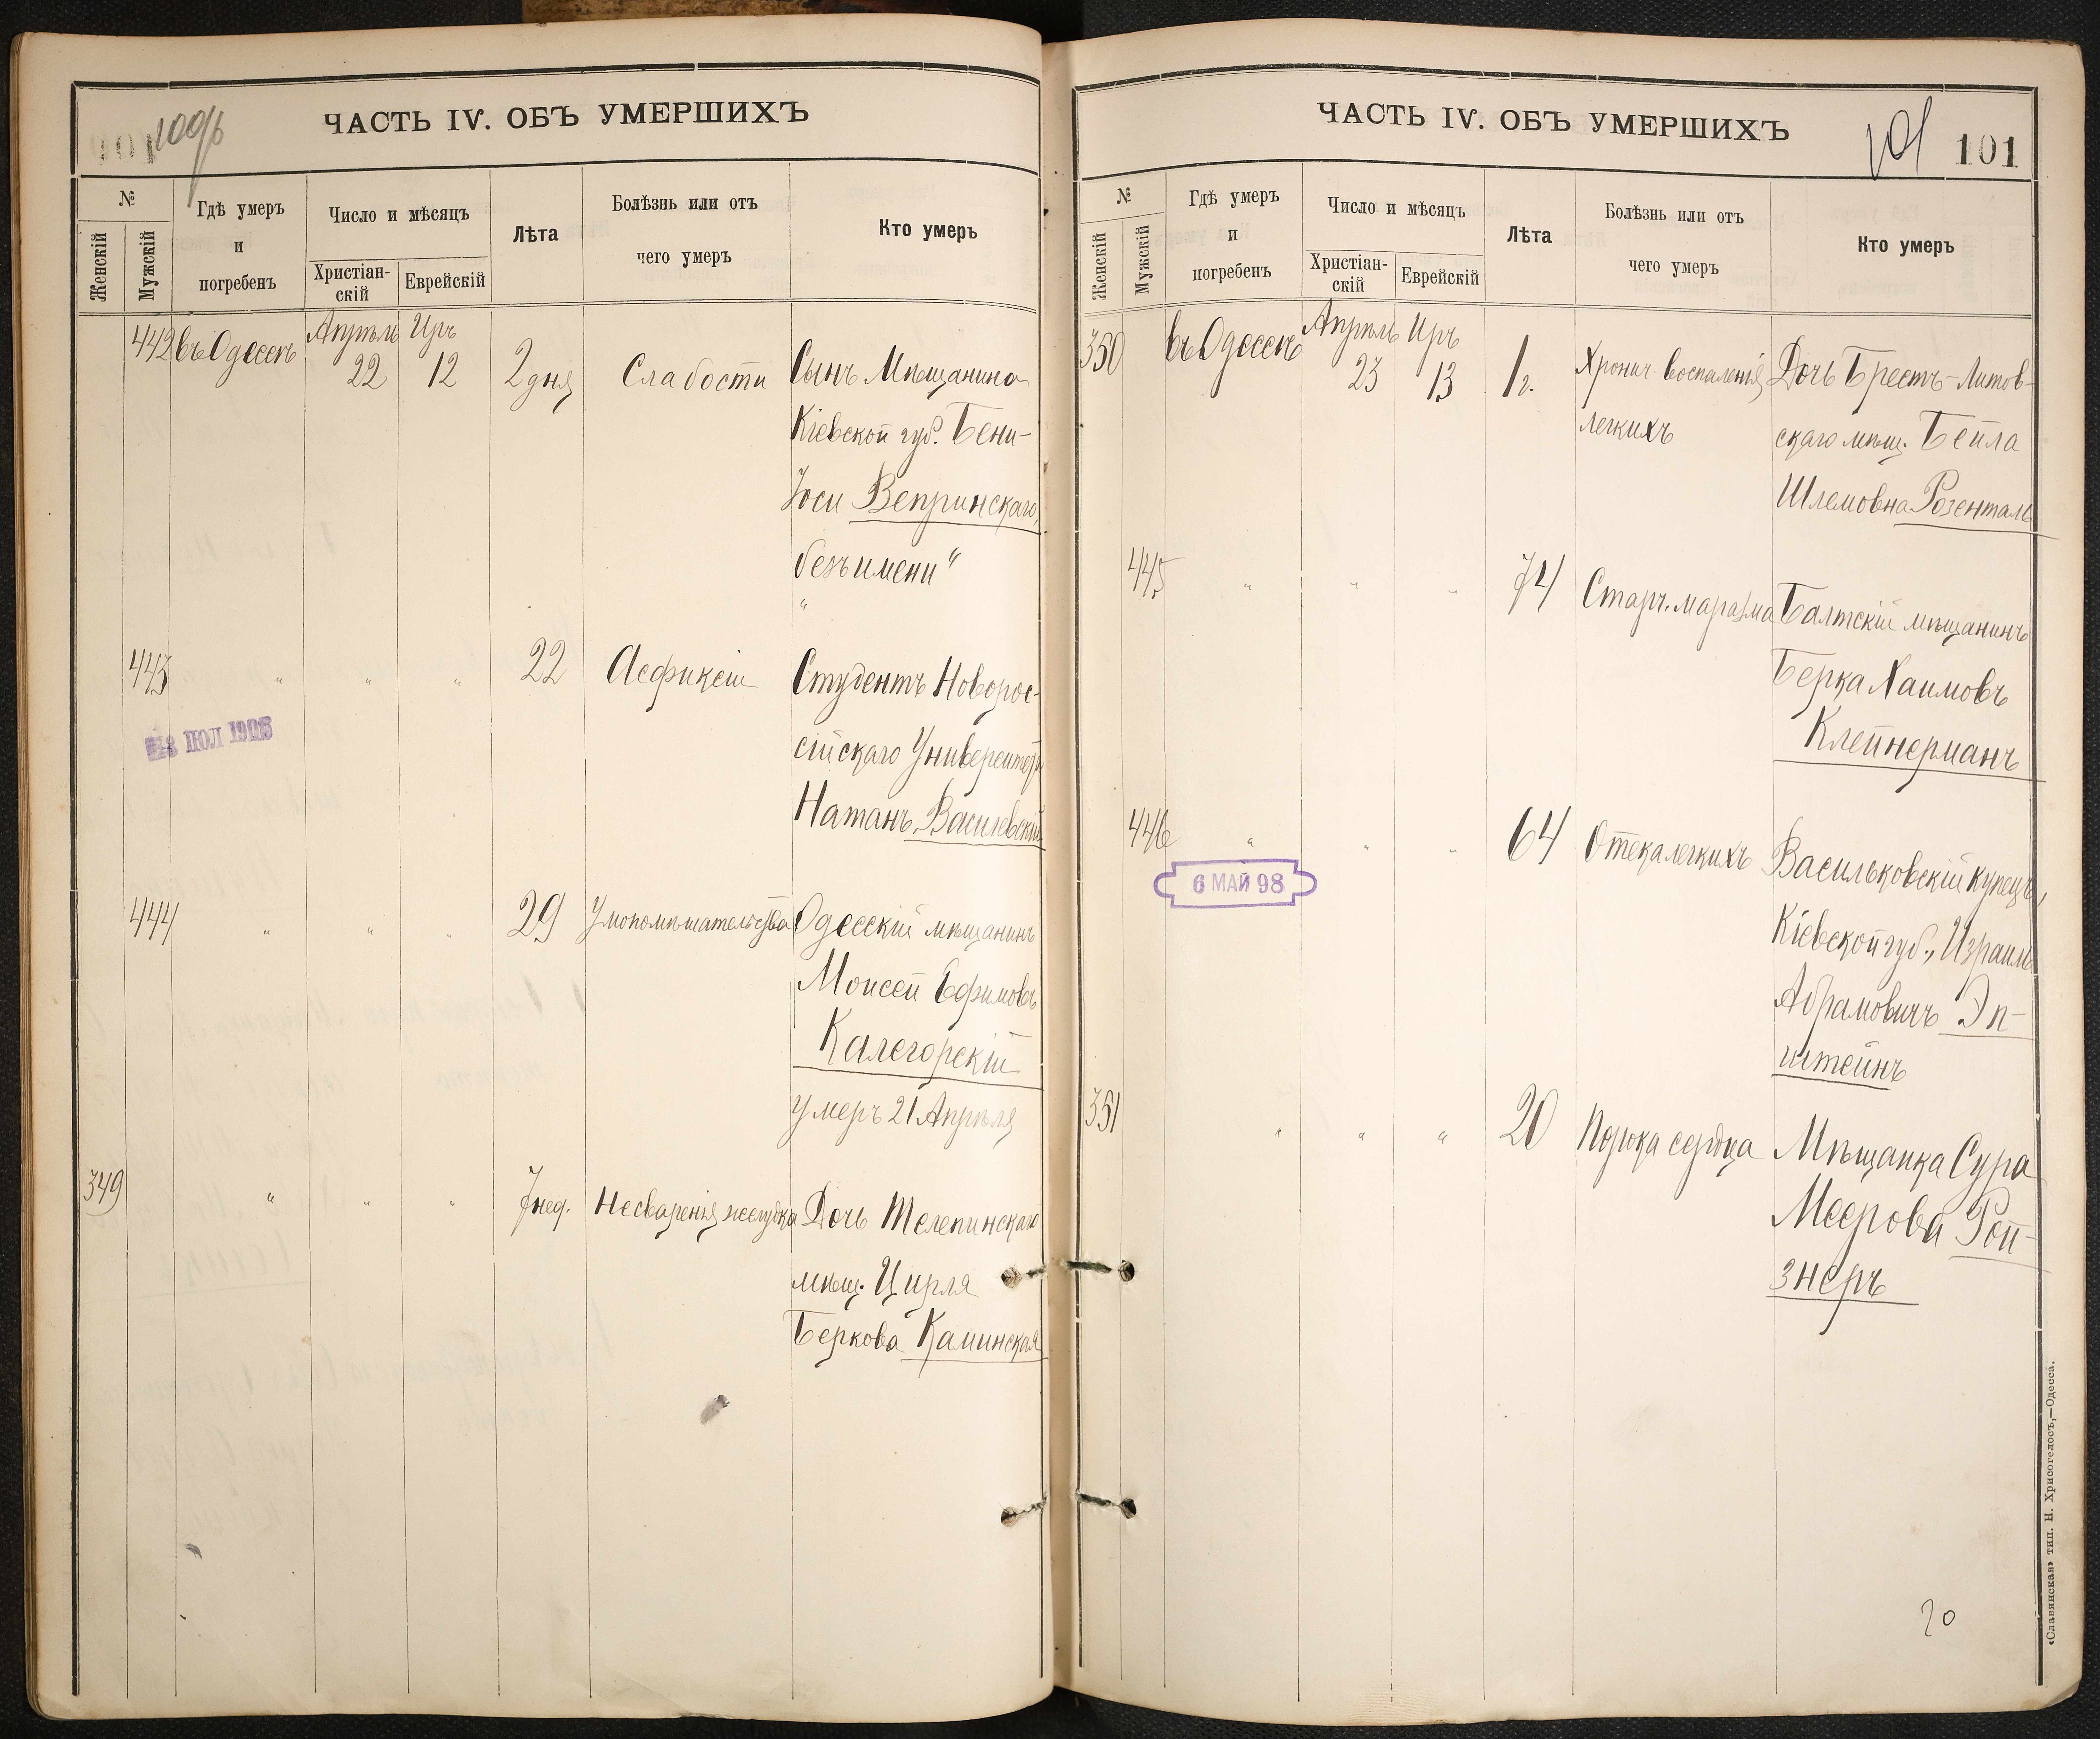 100об
ЧАСТЬ IV. ОБЪ УМЕРШИХЪ
№
Женскій
Мужскій
Гдѣ умеръ
и
погребенъ
Число и мѣсяцъ
Христіан-
скій
Еврейскій
Лѣта
Болѣзнь или отъ
чего умеръ
Кто умеръ
442 въ Одессѣ Апрѣль 22 Иръ 12 2 дня Слабости Сынъ Мѣщанина
Кіевской губ. Бени-
Іоси Вепринскаго,
безъ имени"
"
443 " " " 22 Асфиксіи Студентъ Новорос-
сійскаго Университета
Натанъ Василевскій
ПОЛ
444 " " " 29 Умопомѣшательства Одесскій мѣщанинъ
Моисей Ефимовъ
Калегорскій
умеръ 21 Апрѣля
349 " " " 7 нед. Несваренія желудка Дочь Телепинскаго
мѣщ. Цирля
Беркова Каминская
ЧАСТЬ IV. ОБЪ УМЕРШИХЪ
101 101
№
Женскій
Мужскій
Гдѣ умеръ
и
погребенъ
Число и мѣсяцъ
Христіан-
скій
Еврейскій
Лѣта
Болѣзнь или отъ
чего умеръ
Кто умеръ
350 въ Одессѣ Апрѣль 23 Иръ 13 1 г. Хронич. воспаленія Дочь Брестъ-Литов-
легкихъ скаго мѣщ. Бейла
Шлемовна Розенталь
445 " " " 74 Старч. маразма Балтскій мѣщанинъ
Берка Хаимовъ
Клейнерманъ
446 " " " 64 Отека легкихъ Васильковскій купецъ,
6 МАЙ 98
Кіевской губ., Израиль
Абрамовичъ Эп-
штейнъ
351 " " " 20 Порока сердца Мѣщанка Сура
Меерова Рой-
знеръ
20
«Славянская» тип. Н. Хрисогелосъ,—Одесса.